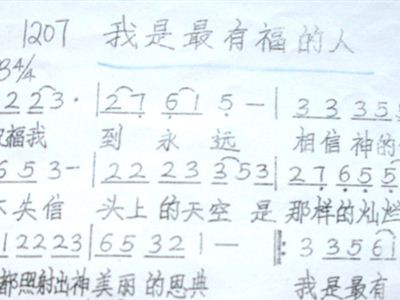 1207 我是最有福的人
4/4
2 2 3· | 2 7 6 1 5 — | 3 3 3 5 5
祝福我 到 永 远 相信 神的
6 5 3 — | 2 2 2 2 3 3 5 3 | 2 7 6 5 5
不失信 头上的天空是 那样的灿烂
1 2 2 2 3 | 6 5 3 2 1 — 3 3 5 6 1
都照射出神美丽的恩典 我是最有